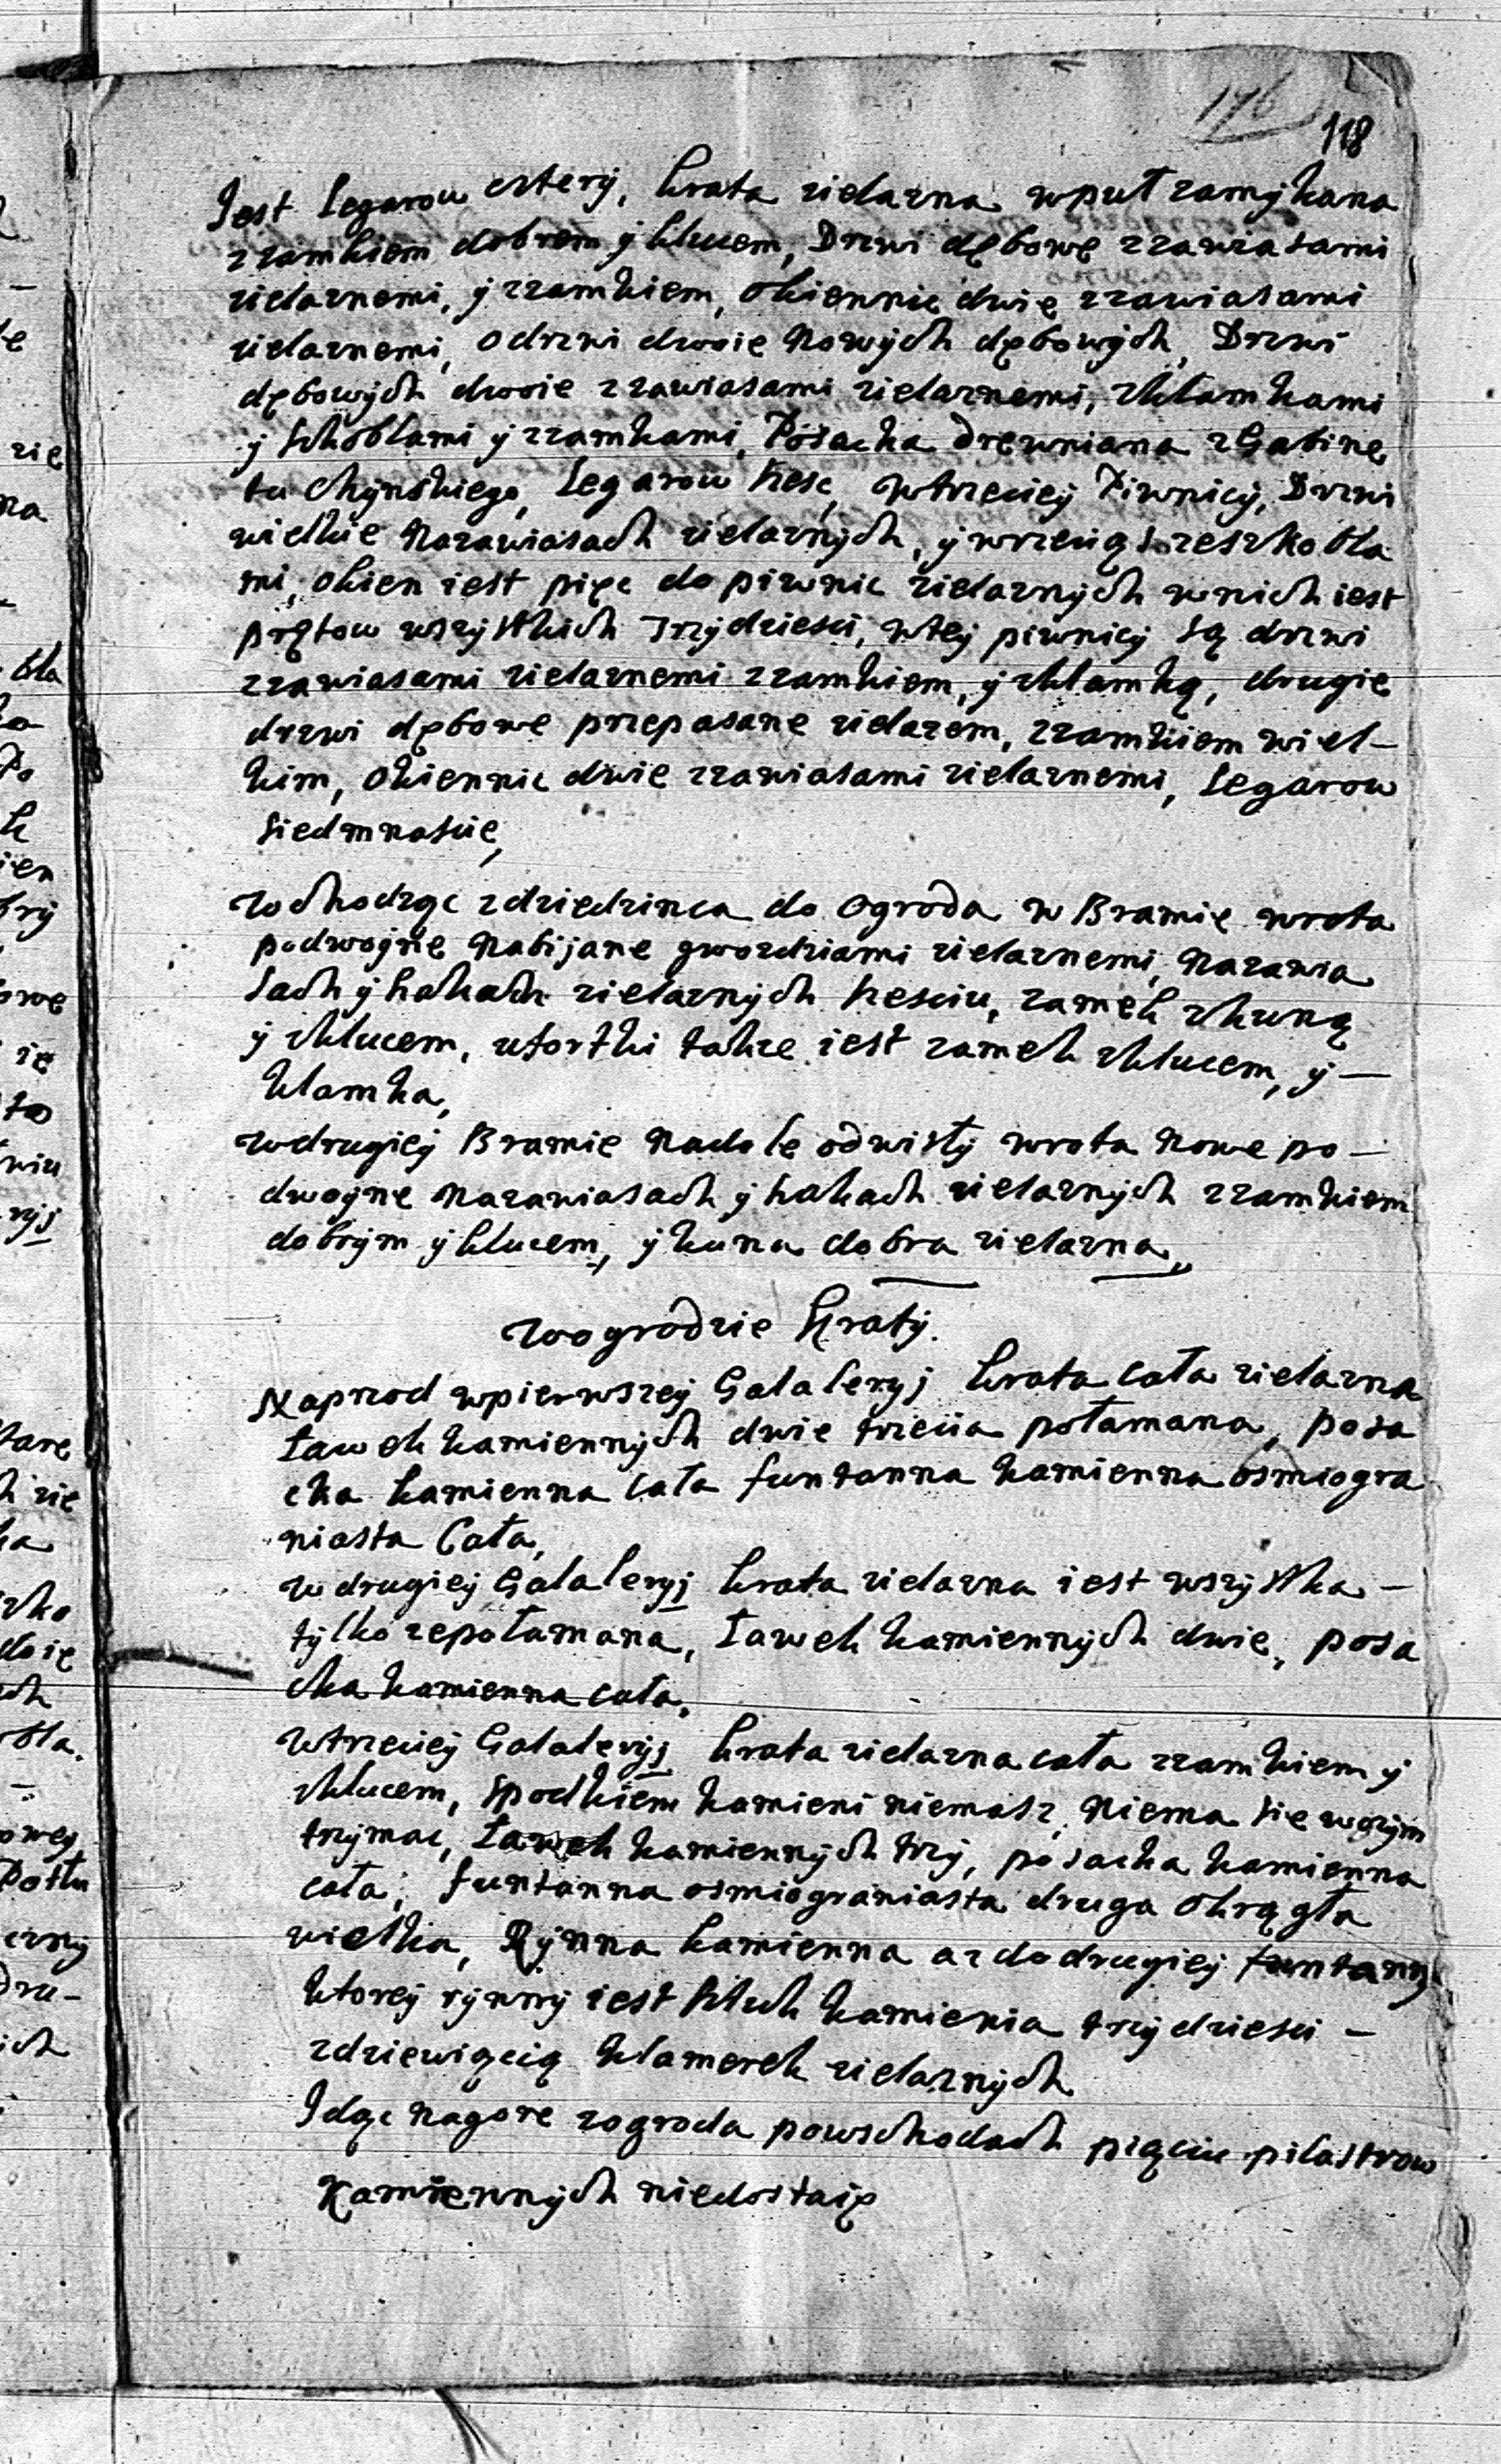 176
118
Jest Legarow cztery, krata zielazna wpuł zamykana
z zamkiem dobrem y kluczem, Drzwi dębowe zzawiasami
zielaznemi, y zzamkiem, Okiennic dwie zzawiasami
zielaznemi, odrzwi dwoie Nowych dębowych, Drzwi
dębowych dwoie zzawiasami zielaznemi, zklamkami
y skoblami y zzamkami, Posacka Drewniana zGabine
tu Chynskiego, Legarow szesc, Wtrzeciey Piwnicy, Drzwi
wielkie Nazawiasach zielaznych, y wrzeciąs zeszkobla
mi, okien iest pięc do piwnic zielaznych wnich iest
prętow wszystkich Trzydziesci, wtey piwnicy są drzwi
zzawiasami zielaznemi zzamkiem, y zklamką, drugie
drzwi dębowe przepasane zielazem, zzamkiem wiel-
kim, Okiennic dwie zzawiasami zielaznemi, Legarow
siedmnascie,
Wchodząc zdziedzinca do Ogroda w Bramie wrota
podwoyne Nabijane gwozdziami zielaznemi, Nazawia
sach y hakach zielaznych szesciu, zamek zkuną
y zklucem, ufortki takze iest zamek zklucem, y —
klamka,
Wdrugiey Bramie Nadole odwisły wrota Nowe po —
dwoyne Nazawiasach y hakach zielaznych zzamkiem
dobrym y klucem, y kuna dobra zielazna,
Wogrodzie Kraty.
Naprzod wpierwszey Galaleryj krata cała zielazna
Ławek kamiennych dwie trzecia połamana, posa
cka kamienna cała funtanna kamienna osmiogra
niasta Cała,
Wdrugiey Galaleryj krata zielazna iest wszystka —
tylko zepołamana, Ławek kamiennych dwie, posa
cka kamienna cała,
Wtrzeciey Galaleryj krata zielazna cała zzamkiem y
zklucem, Spodkiem kamieni niemasz, Niema sie wczym
trzymac, Ławek kamiennych trzy, posacka kamienna
cała, funtanna osmiograniasta druga Okrągła
wielka, Rynna kamienna az do drugiey funtanny
ktorey rynny iest sztuk kamienia trzydziesci —
zdziewiącią klamerek zielaznych
Idąc Nagore zogroda powschodach piąciu pilastrow
Kamiennych niedostaię